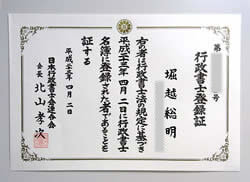 第 号
行政書士登録証
堀越総明
右の者は行政書士法の規定に基づき
平成二十五年四月二日に行政書士
名簿に登録された者であることを
証する
平成二十五年四月二日
日本行政書士会連合会
会長 北山孝次